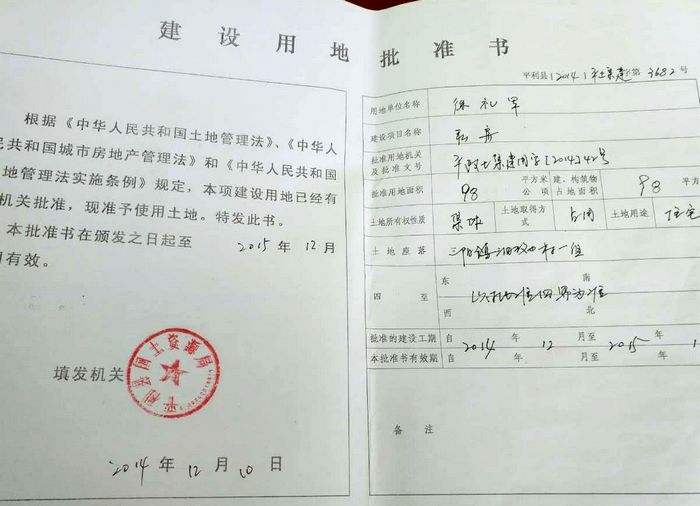 建设用地批准书
根据《中华人民共和国土地管理法》、《中华人
民共和国城市房地产管理法》和《中华人民共和国
地管理法实施条例》规定，本项建设用地已经有
机关批准，现准予使用土地。特发此书。
本批准书在颁发之日起至 2015 年 12 月
有效。
填发机关
平利县国土资源局
2014 年 12 月 10 日
平利县[2014]平土集建字第 3682 号
用地单位名称 徐礼军
建设项目名称 私房
批准用地机关及批准文号 平政土集建用字[2014]42号
批准用地面积 98 平方米 公顷 建、构筑物占地面积 98 平方
土地所有权性质 集体 土地取得方式 占用 土地用途 住宅
土地座落 三阳镇 村一组
四至 东 南 西 北
批准的建设工期 自 2014 年 12 月至 2015 年 1
本批准书有效期 自 年 月至 年
备注